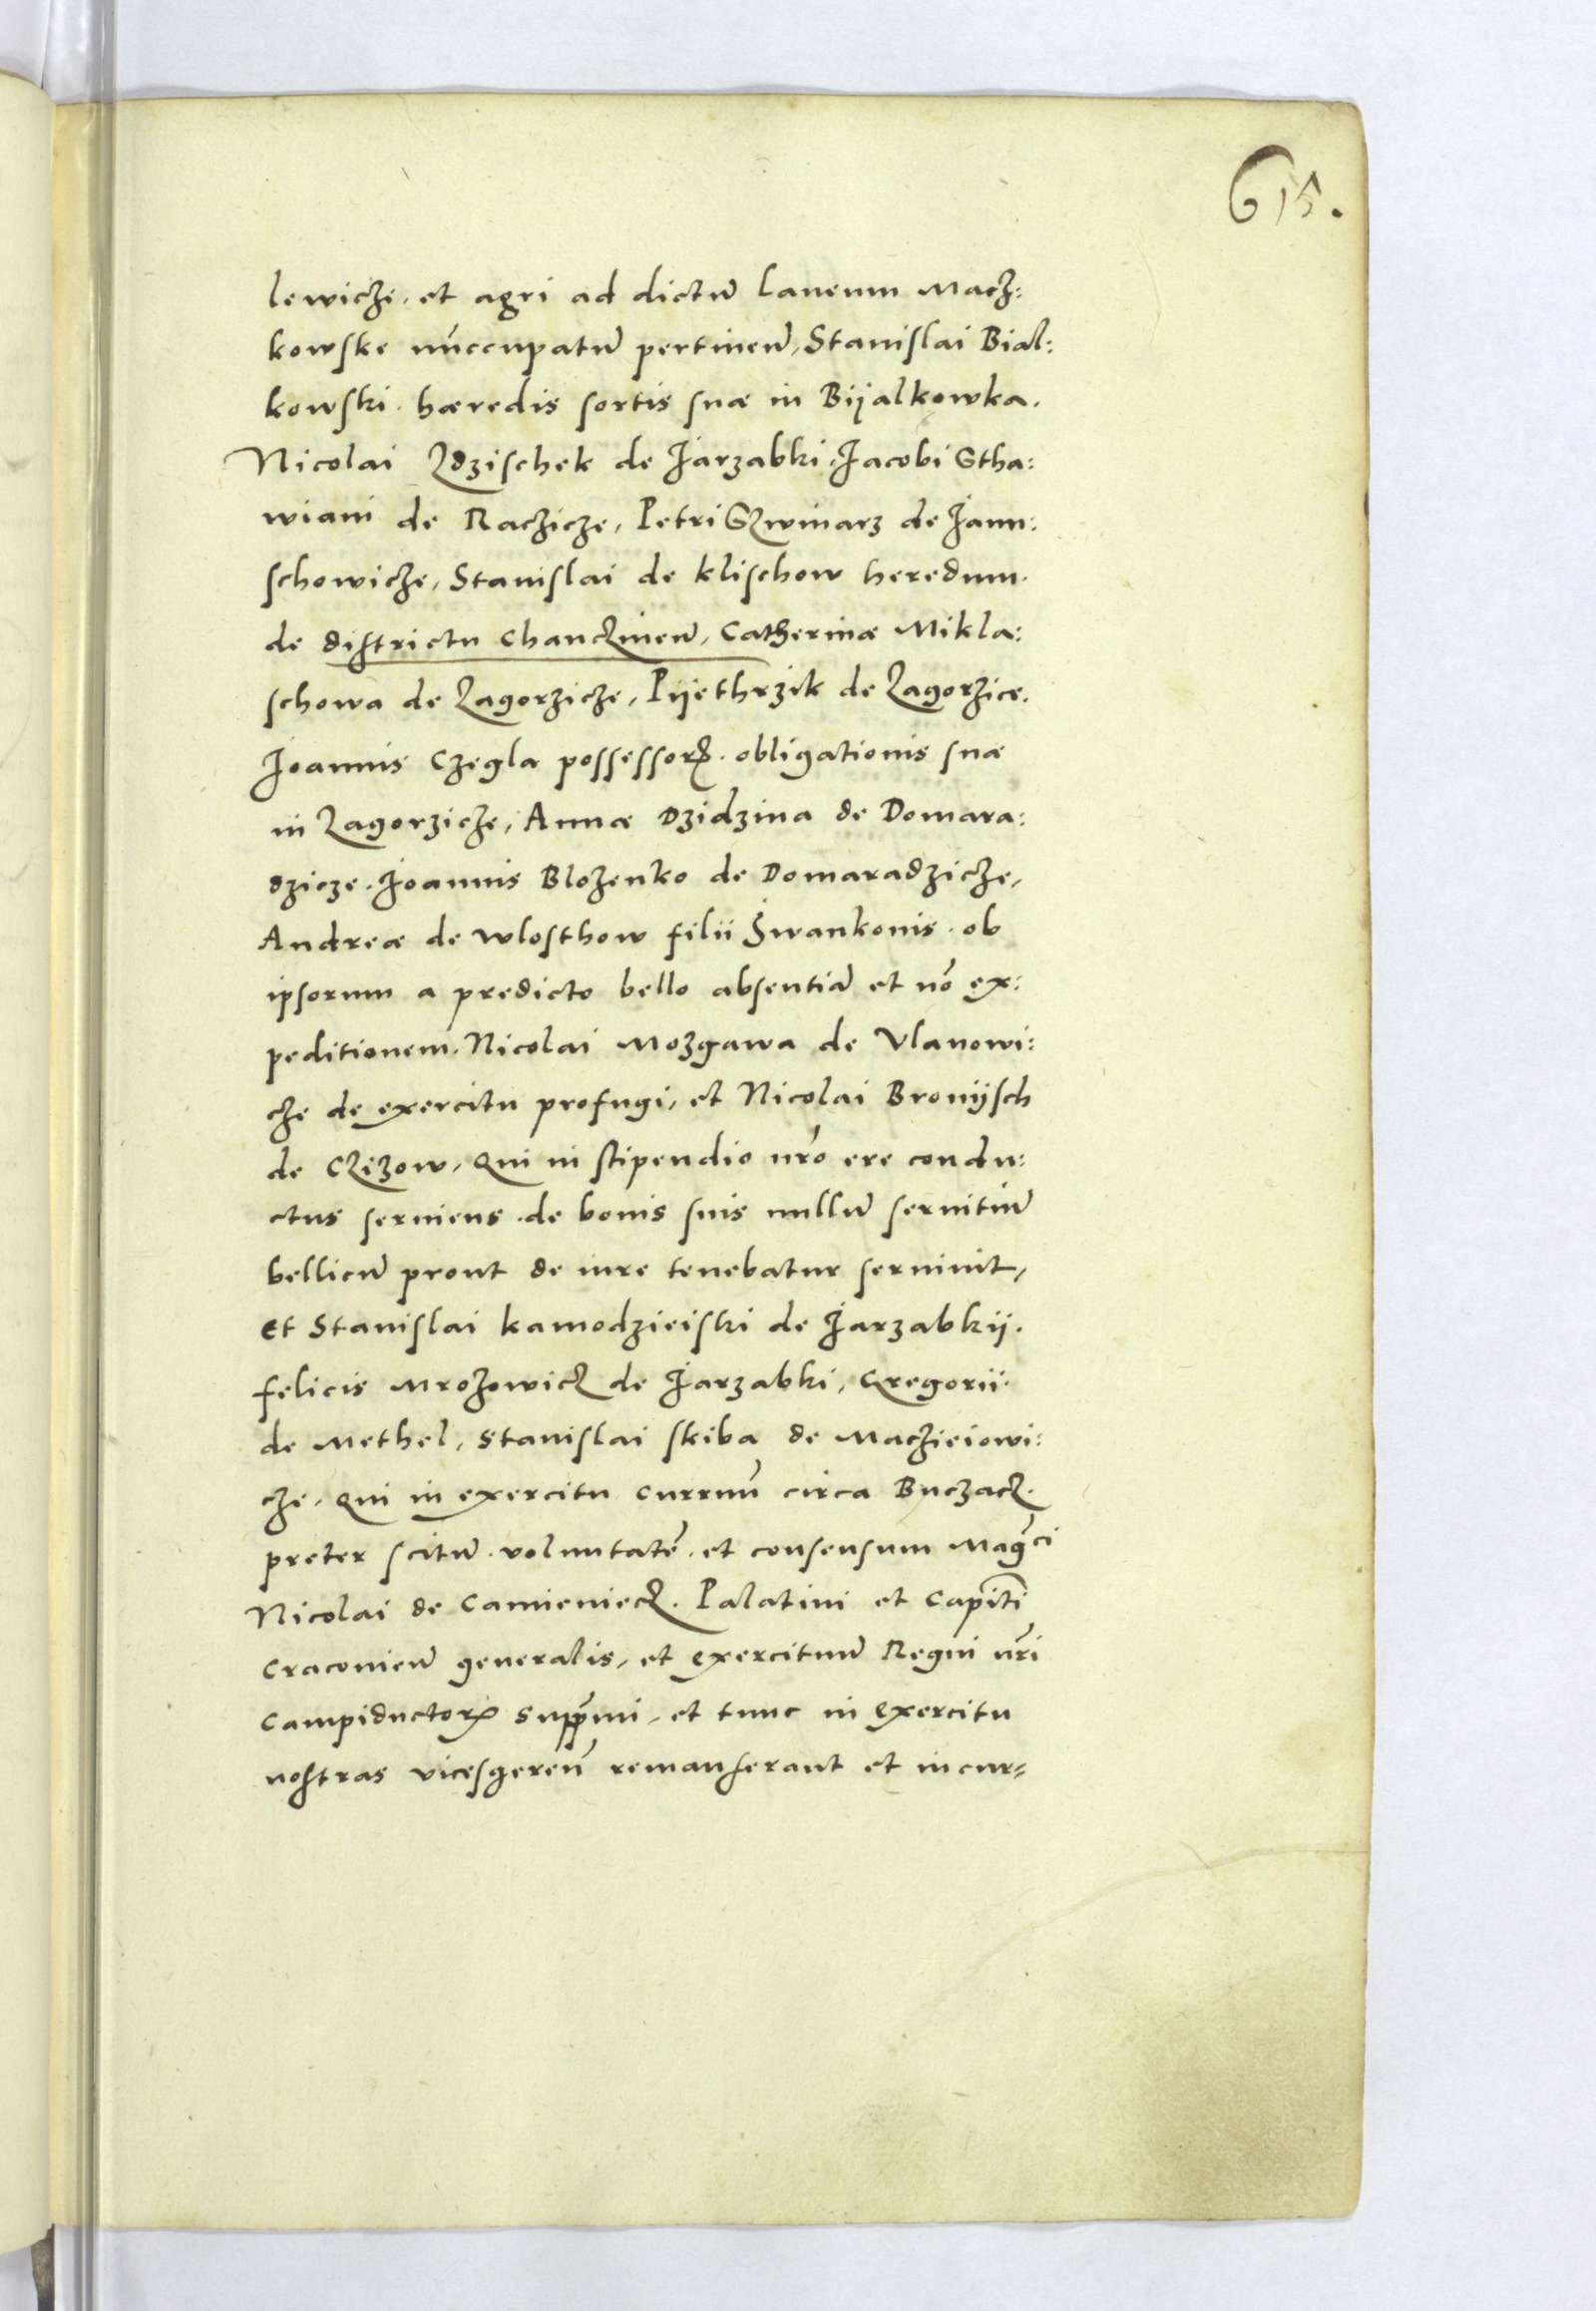 615.
lewicze, et agri ad dictũ laneum Macz:
kowske nũccupatũ pertineñ, Stanislai Bial:
kowski. hæredis sortis suæ in Bijalkowka.
Nicolai Zdzischek de Jarzabki, Jacobi Stha:
wiani de Raczicze, Petri Szwinarz de Janu:
schowicze, Stanislai de Klischow heredum.
de districtu Chanczineñ, Catherinæ Mikla:
schowa de Zagorzicze, Pijethrzik de Zagorzice.
Joannis Czegla possessorꝭ. obligationis suæ
in Zagorzicze, Annæ Dzidzina de Domara:
dzicze. Joannis Blozenko de Domaradzicze,
Andreæ de Wlosthow filii Iwankonis. ob
ipsorum a predicto bello absentiã et nõ ex:
peditionem. Nicolai Mozgawa de Vlanowi:
cze de exercitu profugi, et Nicolai Bronijsch
de Czizow, qui in stipendio nr̃o ere condu:
ctus seruiens. de bonis suis nullũ seruitiũ
bellicũ prout de iure tenebatur seruiuit,
et Stanislai Kamodzieiski de Jarzabkij.
Felicis Mrozowicz de Jarzabki, Gregorii.
de Methel, Stanislai Skiba de Maczieiowi:
cze, qui in exercitu curruũ circa Buczacz.
preter scitũ. voluntatẽ. et consensum Mag̃ci
Nicolai de Camieniecz. Palatini et Capiti
Cracovieñ generalis, et exercituũ Regni nr̃i
campiductorꝭ supp̃mi, et tunc in exercitu
nostras vicesgereñ remanserant et incur=